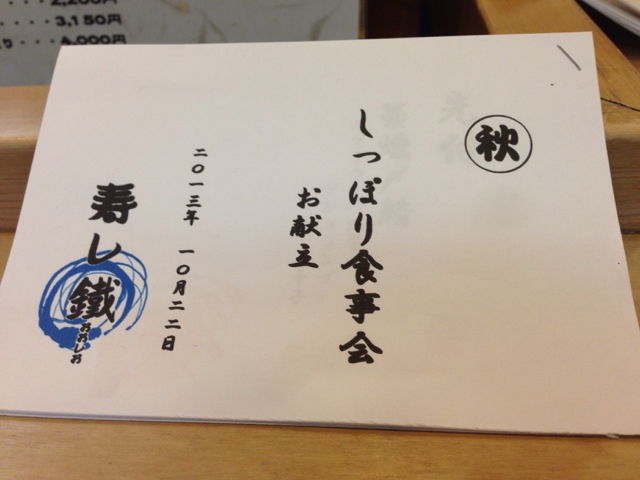 秋
しっぽり食事会
お献立
二〇一三年 一〇月二二日
寿し鐵
おおしお
2,200円
3,150円
4,000円